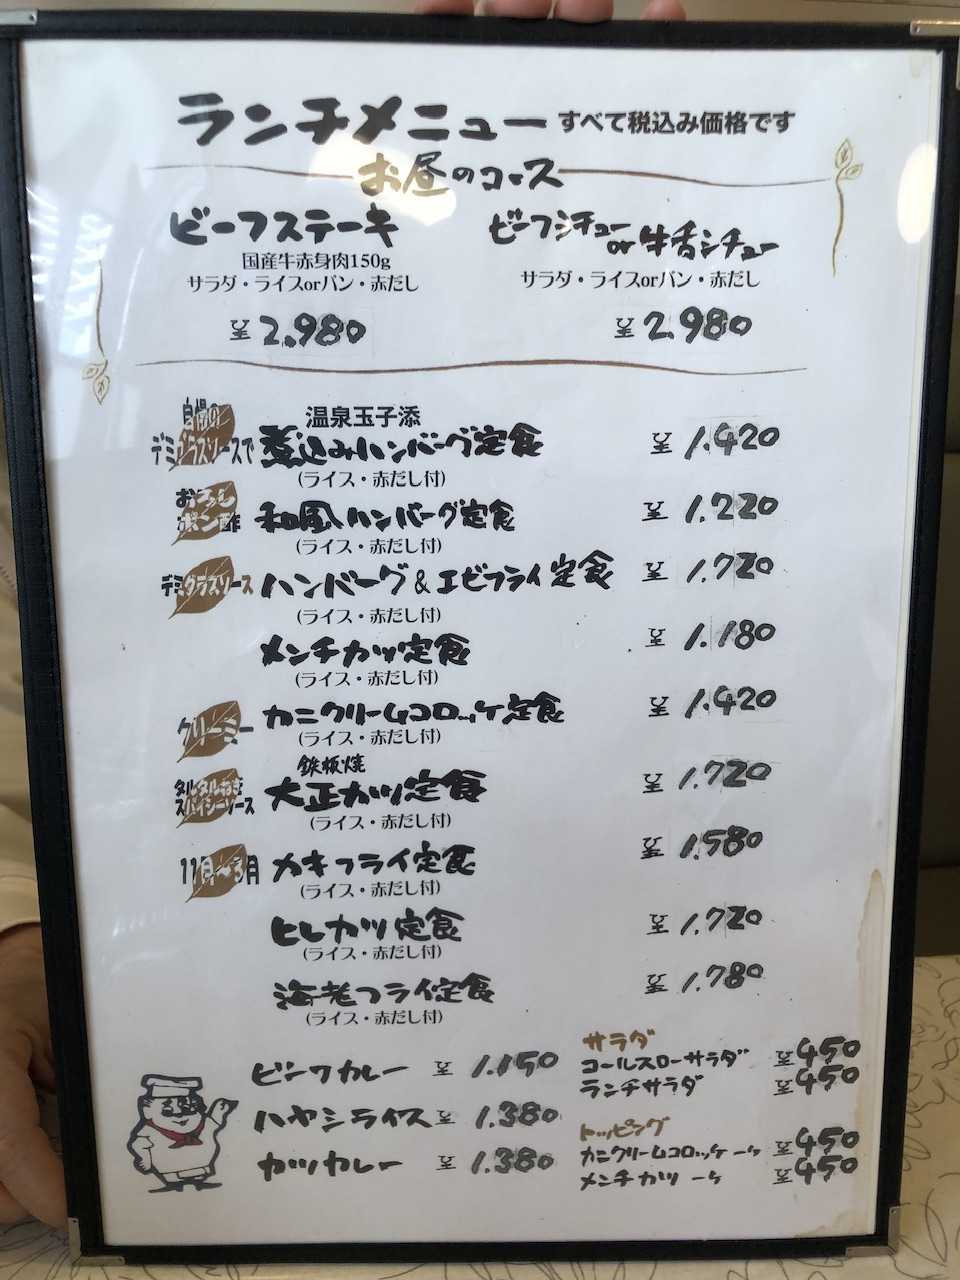 ランチメニュー すべて税込み価格です
お昼のコース
ビーフステーキ
国産牛赤身肉150g
サラダ・ライスorパン・赤だし
¥2.980
ビーフシチュー
or 牛舌シチュー
サラダ・ライスorパン・赤だし
¥2.980
自慢の
デミグラスソースで
温泉玉子添
煮込みハンバーグ定食 ¥1.420
(ライス・赤だし付)
おろし
ポン酢
和風ハンバーグ定食 ¥1.220
(ライス・赤だし付)
デミグラスソース ハンバーグ&エビフライ定食 ¥1.720
(ライス・赤だし付)
メンチカツ定食 ¥1.180
(ライス・赤だし付)
クリーミー カニクリームコロッケ定食 ¥1.420
(ライス・赤だし付)
タルタルねぎ
スパイシーソース
鉄板焼
大正カツ定食 ¥1.720
(ライス・赤だし付)
11月〜3月 カキフライ定食 ¥1.580
(ライス・赤だし付)
ヒレカツ定食 ¥1.720
(ライス・赤だし付)
海老フライ定食 ¥1.780
(ライス・赤だし付)
ビーフカレー ¥1.150
ハヤシライス ¥1.380
カツカレー ¥1.380
サラダ
コールスローサラダ ¥450
ランチサラダ ¥450
トッピング
カニクリームコロッケ 一ケ ¥450
メンチカツ 一ケ ¥450